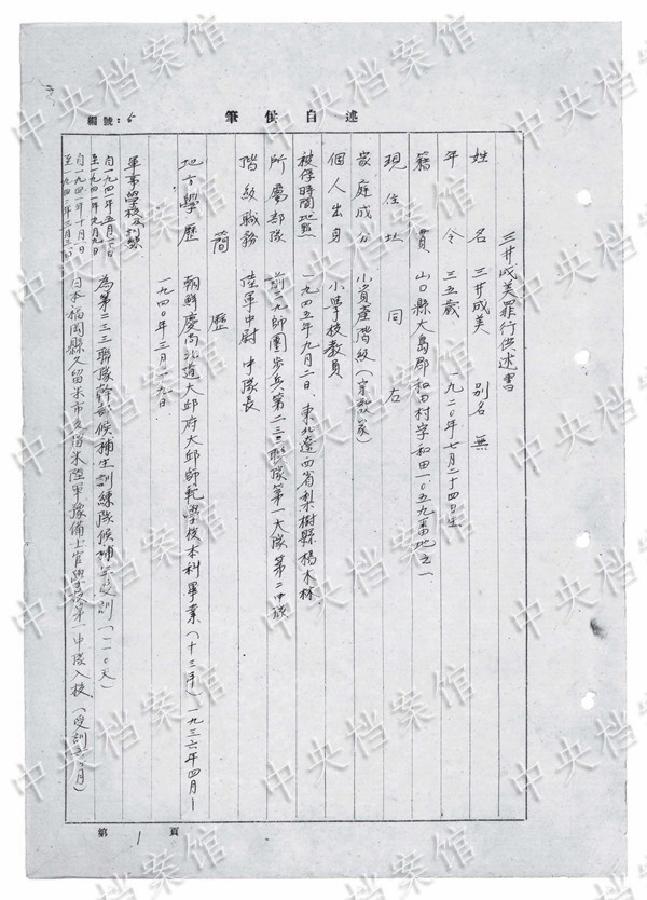 筆供白述
編號：6
三井成美罪行供述書
姓名 三井成美 別名 無
年令 三五歲 一九二〇年七月二十四日生
籍貫 山口縣大島郡和田村字和田一〇五九番地之一
現住址 同右
家庭成分 小資產階級
個人出身 小學校教員
被俘時間地點 一九四五年九月二日、東北遼西省梨樹縣楊木林
所屬部隊 前三九師團步兵第二三三聯隊第一大隊第二中隊
階級職務 陸軍中尉 中隊長
簡歷
地方學歷 朝鮮慶尚北道大邱府大邱師範學校本科畢業（十三年）一九三六年四月—
一九四〇年三月十九日
軍事學校及訓練
自一九四一年五月二〇日
至一九四一年九月九日 為第二三三聯隊幹部候補生訓練隊候補生受訓（一一〇天）
自一九四一年十月一日
至一九四二年三月三〇日 日本福岡縣久留米市久留米陸軍豫備士官學校第一中隊入校（受訓六个月）
第 1 頁
中央档案馆
中央档案馆
中央档案馆
中央档案馆
中央档案馆
中央档案馆
中央档案馆
中央档案馆
中央档案馆
中央档案馆
中央档案馆
中央档案馆